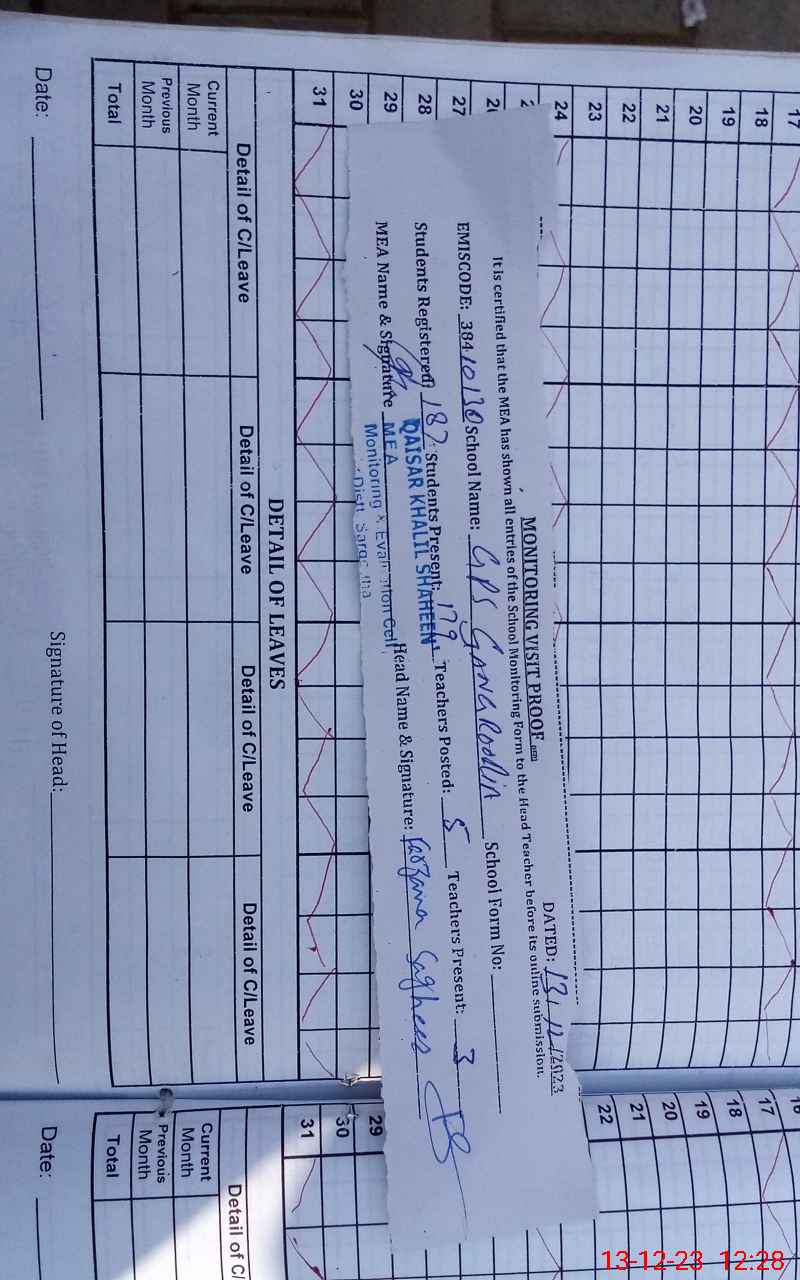 17
18
19
20
21
22
23
24
MONITORING VISIT PROOF
DATED: 13/12/2023
It is certified that the MEA has shown all entries of the School Monitoring Form to the Head Teacher before its online submission.
EMISCODE: 38410130 School Name: GPS School Form No:
Students Registered: 187 Students Present: 179 Teachers Posted: 5 Teachers Present: 3
MEA Name & Signature Head Name & Signature: Farzana
QAISAR KHALIL SHAHEEN
MEA
Monitoring & Evaluation Cell
Distt. Sargodha
27
28
29
30
31
DETAIL OF LEAVES
Detail of C/Leave Detail of C/Leave Detail of C/Leave Detail of C/Leave
Current Month
Previous Month
Total
Date: Signature of Head:
17
18
19
20
21
22
29
30
31
Detail of C/
Current Month
Previous Month
Total
Date:
13-12-23 12:28